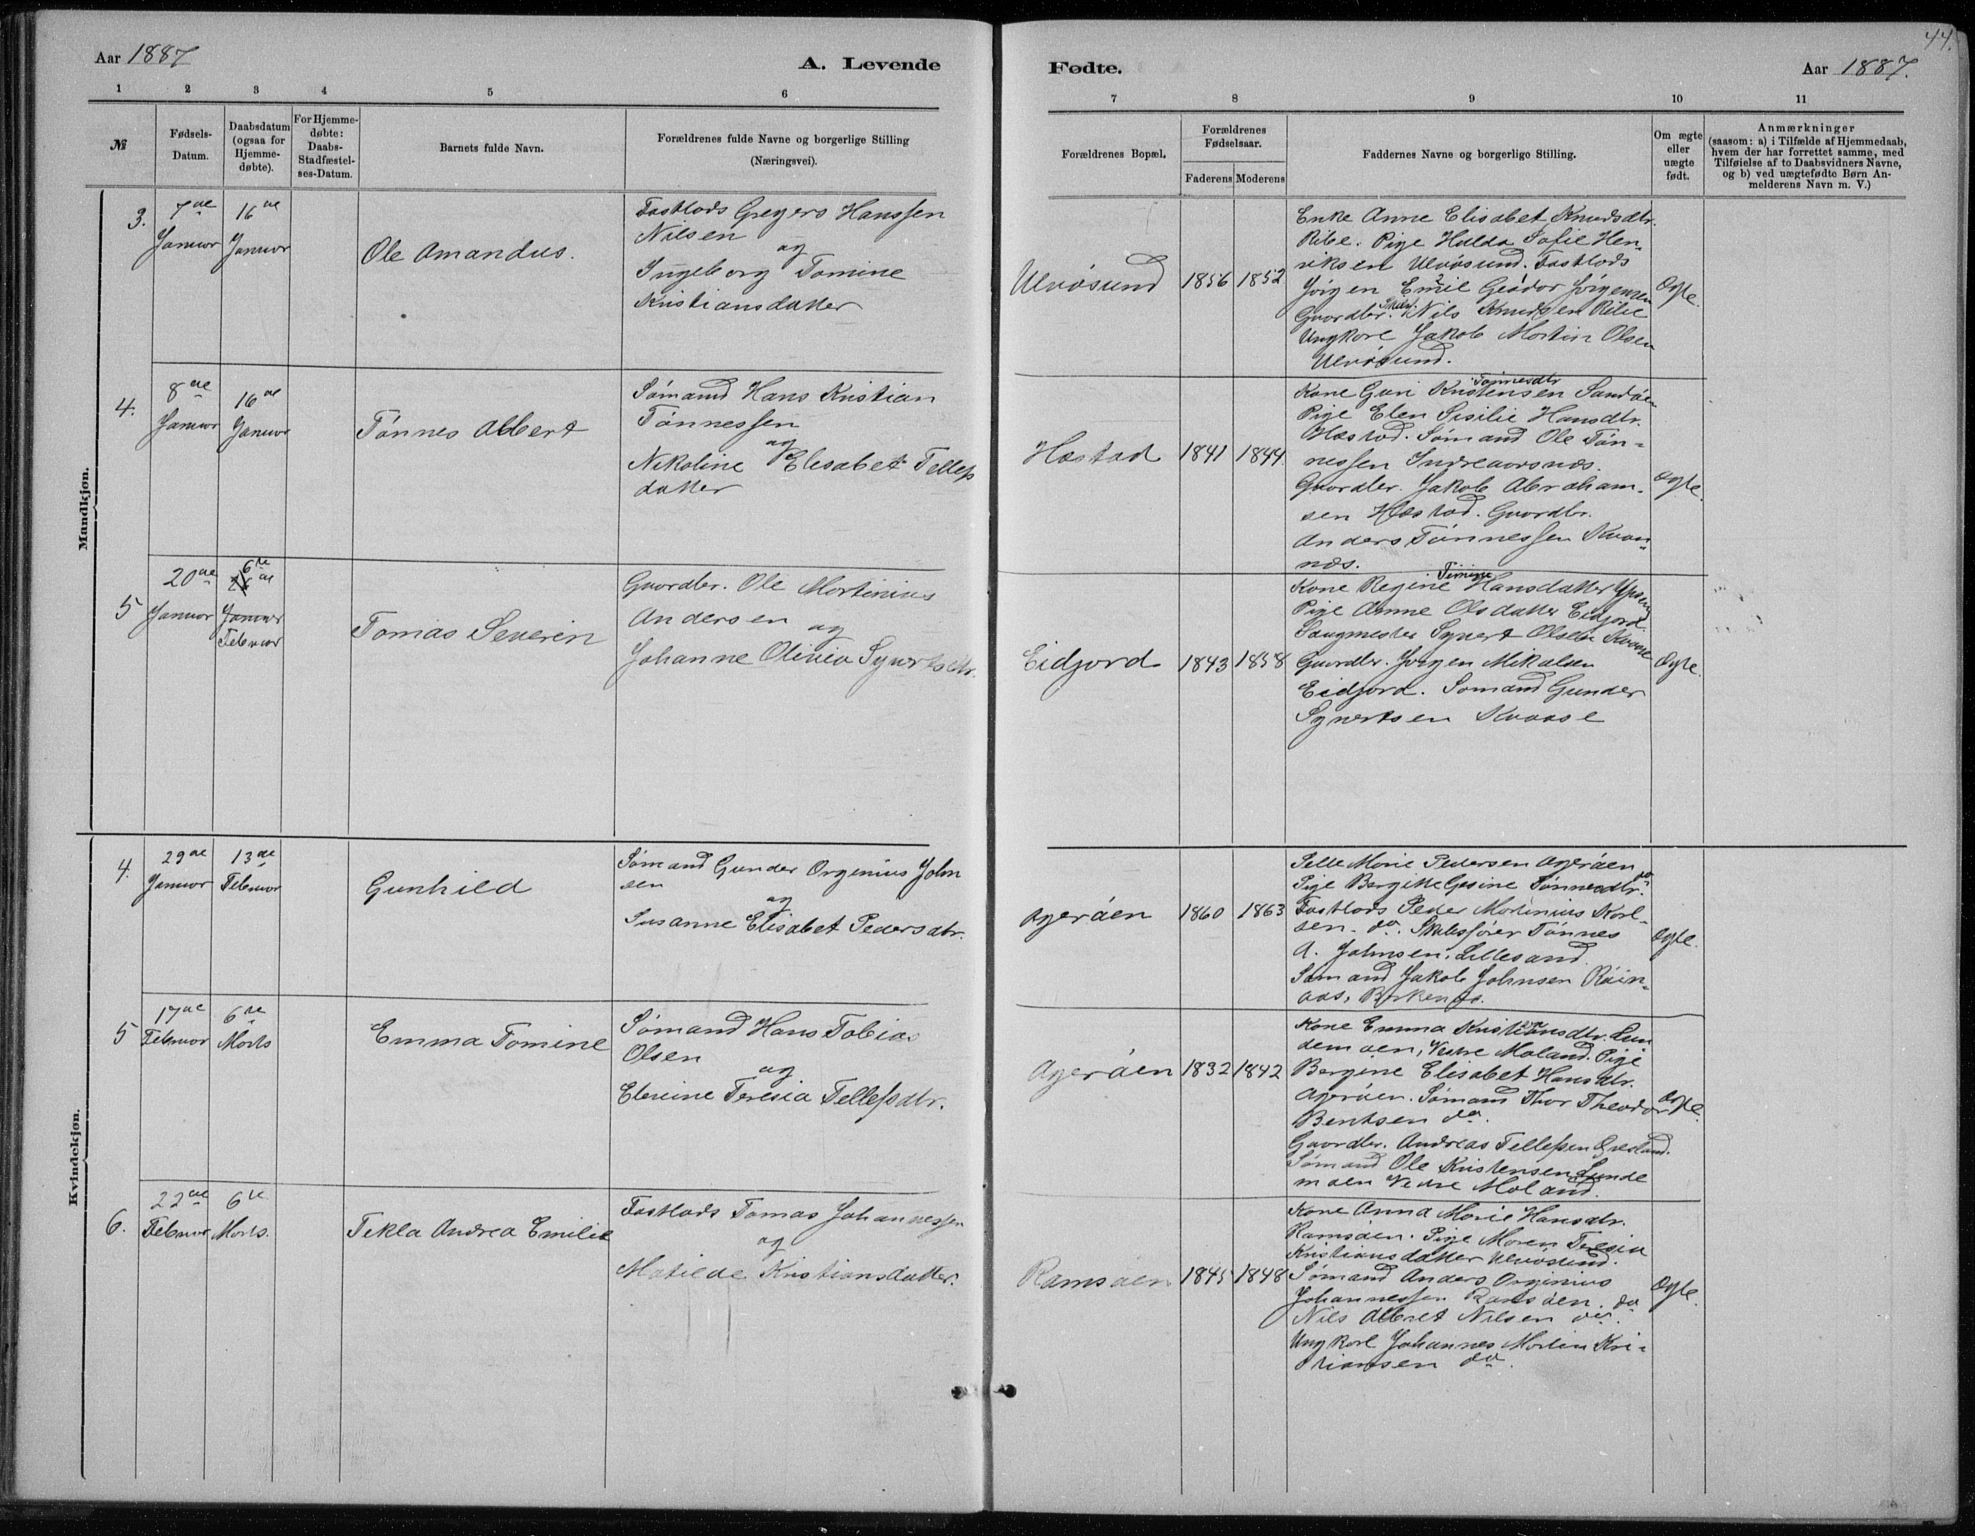 44.
Aar 1887
A. Levende
Fødte.
Aar 1887.
1 2 3 4 5 6
7 8 9 10 11
№
Fødsels-
Datum.
Daabsdatum
(ogsaa for
Hjemme-
døbte).
For Hjemme-
døbte:
Daabs-
Stadfæstel-
ses-Datum.
Barnets fulde Navn.
Forældrenes fulde Navne og borgerlige Stilling
(Næringsvei).
Forældrenes Bopæl.
Forældrenes
Fødselsaar.
Faderens Moderens
Faddernes Navne og borgerlige Stilling.
Om ægte
eller
uægte
født.
Anmærkninger
(saasom: a) i Tilfælde af Hjemmedaab,
hvem der har forrettet samme, med
Tilføielse af to Daabsvidners Navne,
og b) ved uægtefødte Børn An-
melderens Navn m. V.)
Mandkjøn.
3.
7de
Januar
16de
Januar
Ole Amandus.
Fastlods Gregers Hanssen
Nilsen
og
Ingeborg Tomine
Kristiansdatter
Ulvøsund
1856
1852
Enke Anne Elisabet Knudsdtr.
Ribe. Pige Hulda Sofie Hen-
riksen Ulvøsund. Fastlods
Jörgen Emil Jörgensen
Gaardbr. Nils Knudsen Ribe
Ungkarl Jakob Martin Olsen
Ulvøsund.
Ægte.
4.
8de
Januar
16de
Januar
Tønnes Albert
Sømand Hans Kristian
Tønnessen
og
Nikoline Elisabet Tellefs
datter
Hæstad
1841
1844.
Tønnesdtr
Kone Guri Kristensen Sandøen
Pige Elen Sisilie Hansdtr.
Hæstad. Sømand Ole Tøn-
nessen Indreaarsnæs.
Gaardbr. Jakob Abraham-
sen Hæstad. Gaardbr.
Anders Tønnessen Kvan-
næs.
Ægte.
5
20de
Januar
6te
16de
Januar
Februar
Tomas Severin
Gaardbr. Ole Martinius
Andersen
og
Johanne Olivia Syvertsdtr.
Eidjord
1843
1858
Timine
Kone Regine Hansdatter
Pige Anne Olsdatter Eidjord
Saugmester Syvert Olsen Kvaase
Gaardbr. Jörgen Mikalsen
Eidjord. Sømand Gunder
Syvertsen Kvaase
Ægte.
Kvindekjøn.
4.
29de
Januar
13de
Februar
Gunhild
Sømand Gunder Orgenius John
sen
og
Susanne Elisabet Pedersdtr.
Agerøen
1860
1863
Marie Pedersen Agerøen
Pige Bergitte Gesine Tønnesdtr. do
Fastlods Peder Martinius Karl-
sen. do. Skibsfører Tønnes
A. Johnsen, Lillesand.
Sømand Jakob Johnsen Røin-
aas, Birkenæs.
Ægte.
5
17de
Februar
6te
Marts
Emma Tomine
Sømand Hans Tobias
Olsen
og
Elevine Teresia Tellefsdtr.
Agerøen
1832
1842
Kone Emma Kristiansdtr. Lun
demoen, Vestre Moland. Pige
Bergine Elisabet Hansdtr.
Agerøen. Sømand Thor Theodor
Bentsen do.
Gaardbr. Andreas Tellefsen
Sømand Ole Kristensen Lunde
moen Vestre Moland.
Ægte.
6.
22de
Februar
6te
Marts.
Tekla Andrea Emilie
Fastlods Tomas Johannessen
og
Matilde Kristiansdatter.
Ramsøen
1845
1848
Kone Anna Marie Hansdtr.
Ramsøen. Pige Maren Teresia
Kristiansdatter Ulvøsund.
Sømand Anders Orginius
Johannessen Ramsøen. do
Nils Albret Nilsen do.
Ungkarl Johannes Martin Kri-
stiansen do.
Ægte.